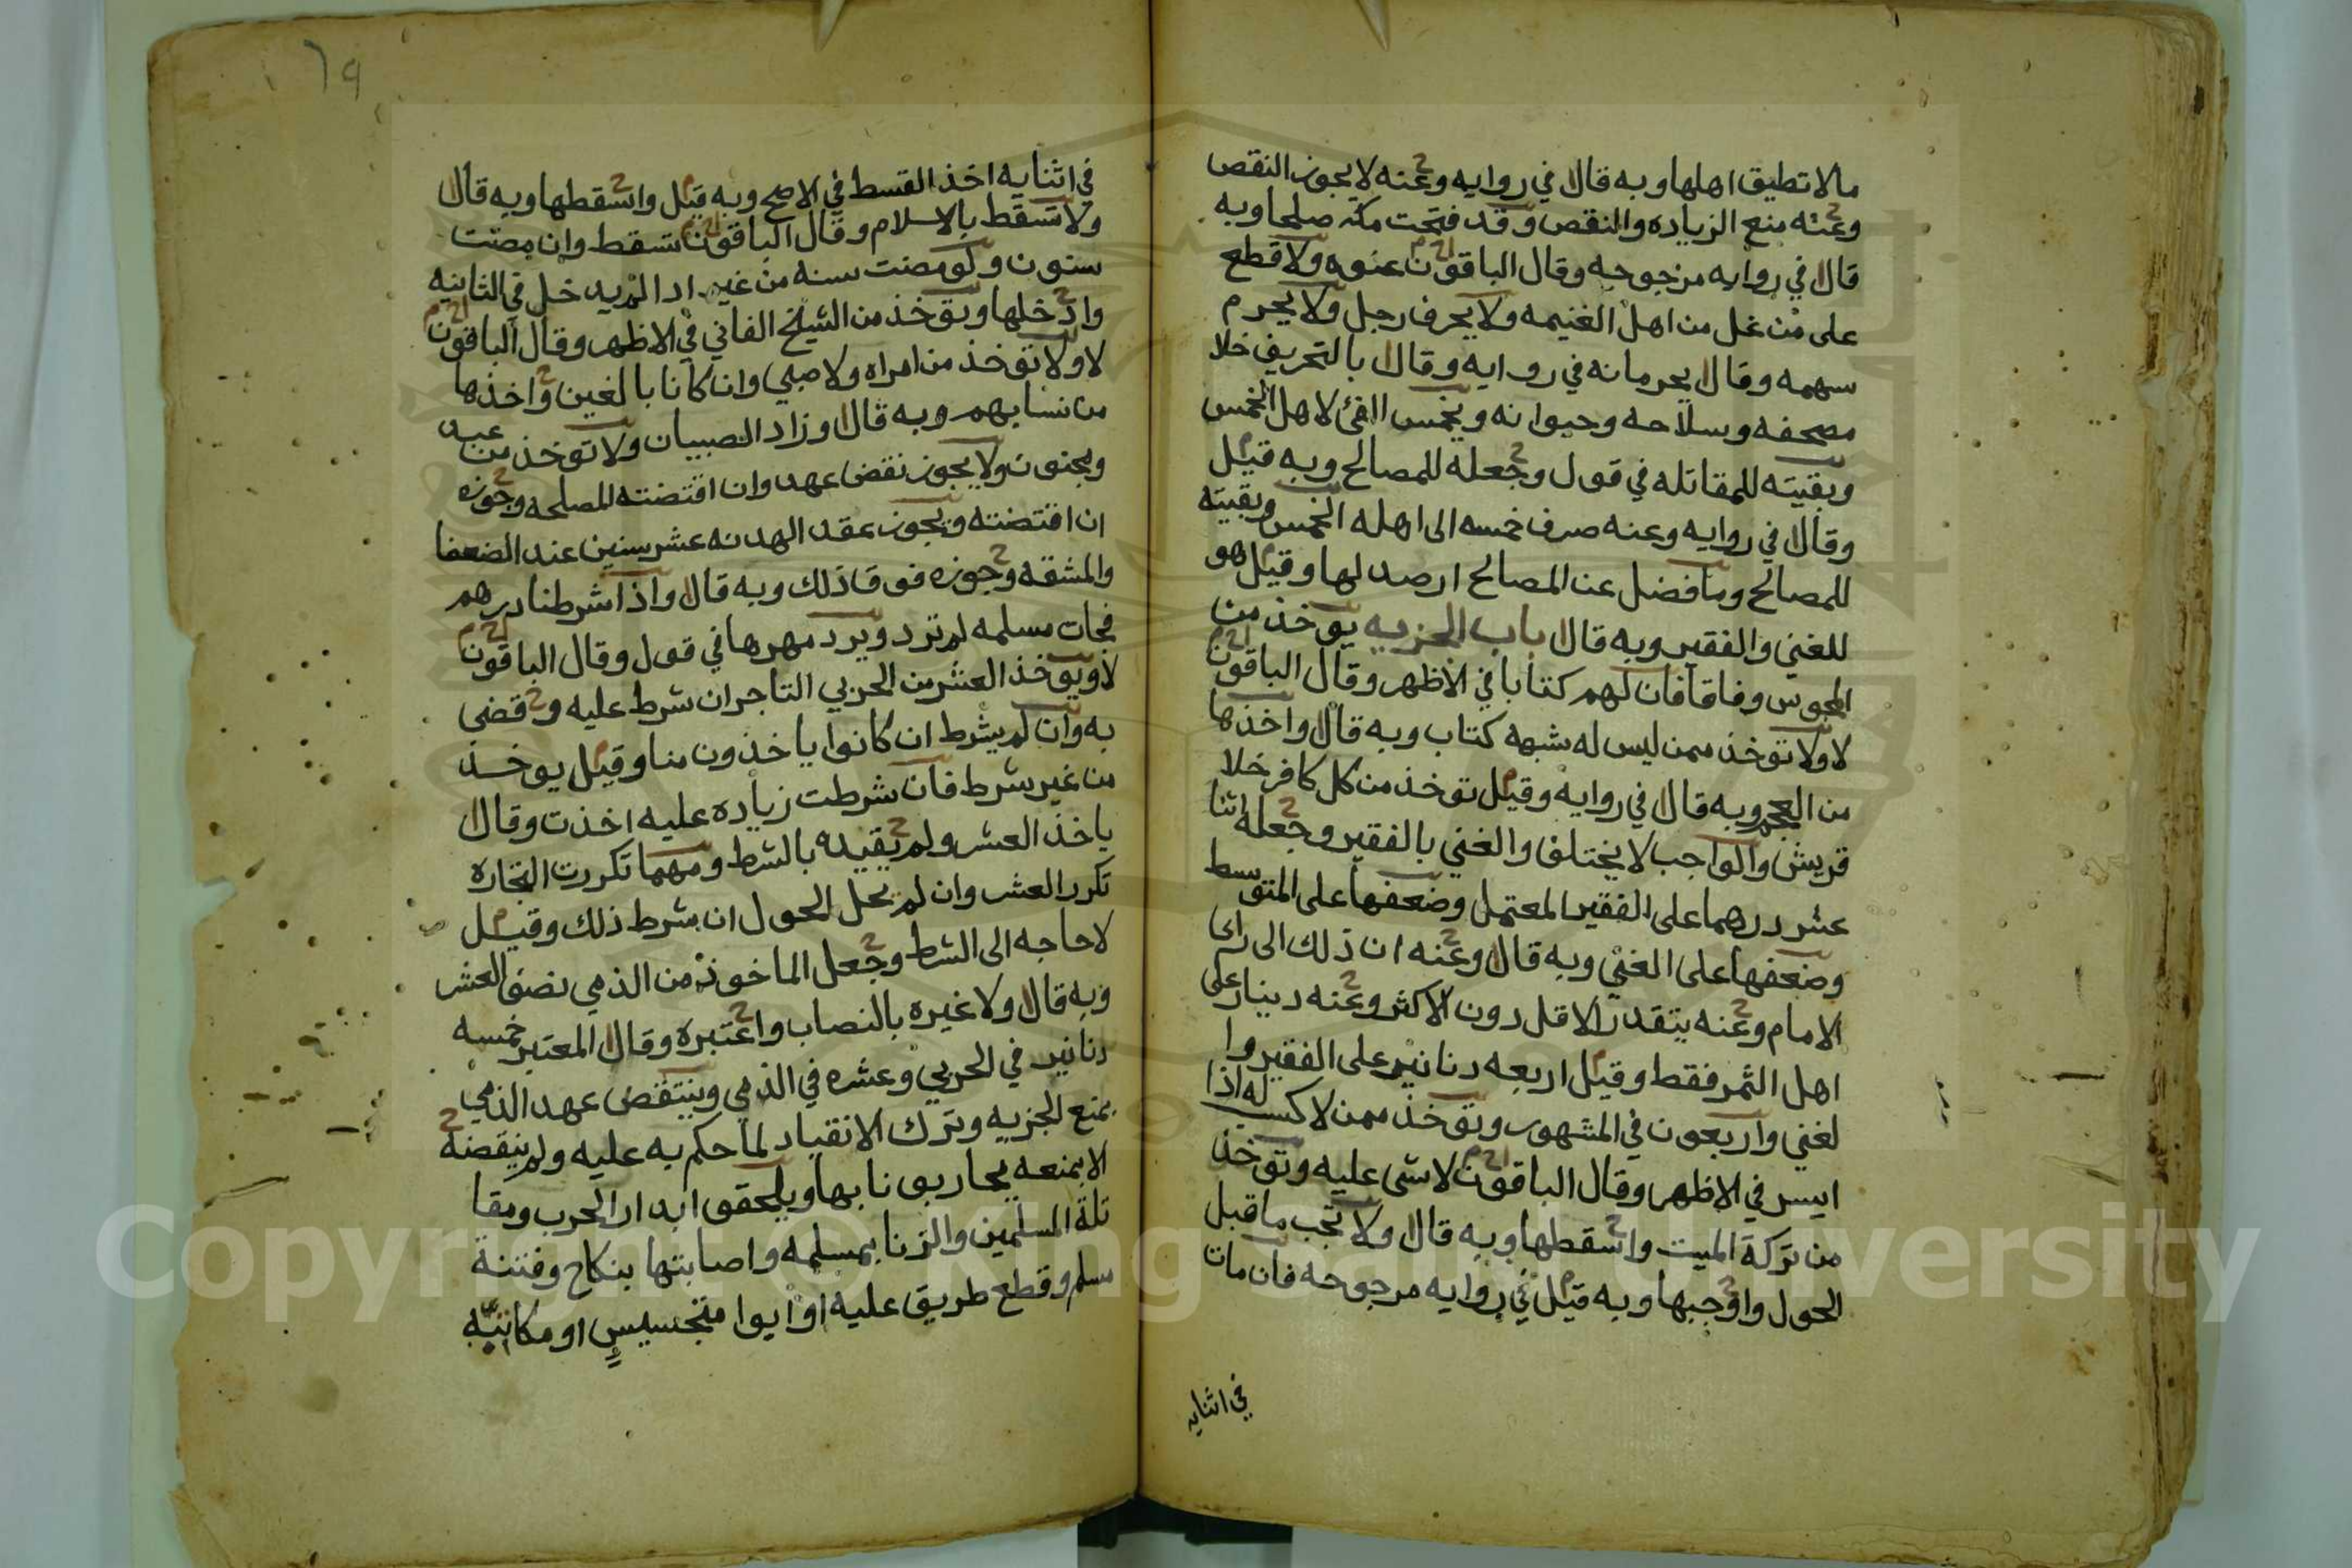 ما لا تطيق اهلها وبه قال في روايه وعنه لا يجوز النقص
وعنه منع الزياده والنقص وقد فتحت مكه صلحا وبه
قال في روايه مرجوحه وقال الباقون عنوه ولا قطع
على من غل من اهل الغنيمه ولا يحرف رجل ولا يحرم
سهمه وقال بحرمانه في روايه وقال بالتحريف خلا
مصحفه وسلاحه وحيوانه ويخمس الفئ لاهل الخمس
وبقيته للمقاتله في قول وجعله للمصالح وبه قيل
وقال في روايه وعنه صرف خمسه الى اهله الخمس وبقيته
للمصالح وما فضل عن المصالح ارصد لها وقيل هو
للغني والفقير وبه قال باب الجزيه يوخذ من
المجوس وفاقا فان لهم كتابا في الاظهر وقال الباقون
لا ولا توخذ ممن ليس له شبهه كتاب وبه قال واخذها
من العجم وبه قال في روايه وقيل توخذ من كل كافر خلا
قريش والواجب لا يختلف والغني بالفقير وجعله اثنا
عشر درهما على الفقير المعتمل وضعفها على المتوسط
وضعفها على الغني وبه قال وعنه ان ذلك الى راى
الامام وعنه يتقدر الاقل دون الاكثر وعنه دينار على
اهل الثمر فقط وقيل اربعه دنانير على الفقير وا
لغني واربعون في المشهور وتوخذ ممن لا كسب له اذا
ايسر في الاظهر وقال الباقون لا شى عليه وتوخذ
من تركة الميت واسقطها وبه قال ولا تجب ما قبل
الحول واوجبها وبه قيل في روايه مرجوحه فان مات
في اثنايه
٦٩
في اثنايه اخذ القسط في الاصح وبه قيل واسقطها وبه قال
ولا تسقط بالاسلام وقال الباقون تسقط وان مضت
سنون ولو مضت سنه من غير ادا لم يدخل في الثانيه
وادخلها وتوخذ من الشيخ الفاني في الاظهر وقال الباقون
لا ولا توخذ من امراه ولا صبي وان كانا بالغين واخذها
من نسايهم وبه قال وزاد الصبيان ولا توخذ من عبد
ومجنون ولا يجوز نقض عهد وان اقتضته المصلحه وجوزه
ان اقتضته ويجوز عقد الهدنه عشر سنين عند الضعفا
والمشقه وجوزه فوق ذلك وبه قال واذا شرطنا درهم
فجات مسلمه لم ترد ويرد مهرها في قول وقال الباقون
لا ويوخذ العشر من الحربي التاجر ان شرط عليه وقضى
به وان لم يشرط ان كانوا ياخذون منا وقيل يوخذ
من غير شرط فان شرطت زياده عليه اخذت وقال
ياخذ العشر ولم يقيده بالشرط ومهما تكررت التجاره
تكرر العشر وان لم يحل الحول ان شرط ذلك وقيل
لا حاجه الى الشرط وجعل الماخوذ من الذمي نصف العشر
وبه قال ولا غيره بالنصاب واعتبره وقال المعتبر خمسه
دنانير في الحربي وعشره في الذمي وينتقض عهد الذمي
بمنع الجزيه وترك الانقياد لما حكم به عليه ولم ينقضه
الا بمنعه يحاربونا بها ويلحقوا بدار الحرب ومقا
تلة المسلمين والزنا بمسلمه واصابتها بنكاح وفتنة
مسلم وقطع طريق عليه او ايوا متجسيس او مكاتبه
Copyright © King Saud University